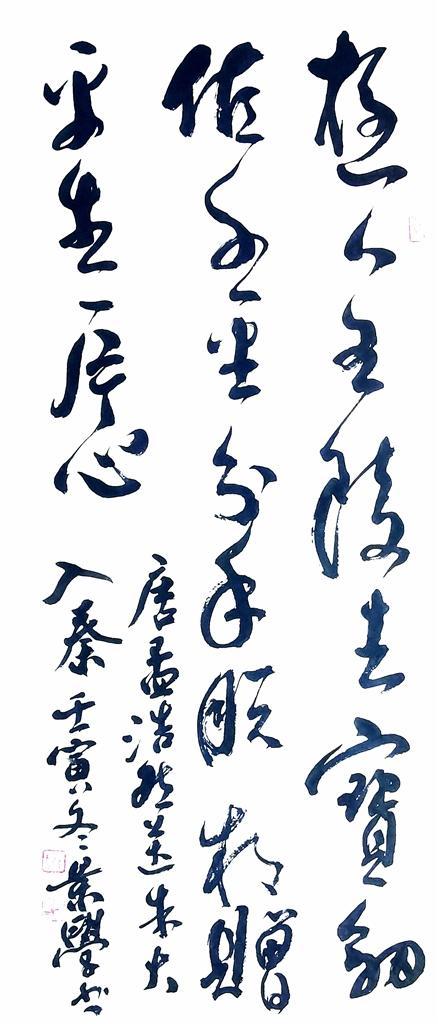 遊人五陵去寶劍
值千金分手脱相贈
平生一片心
唐孟浩然送朱大
入秦壬寅冬業學书